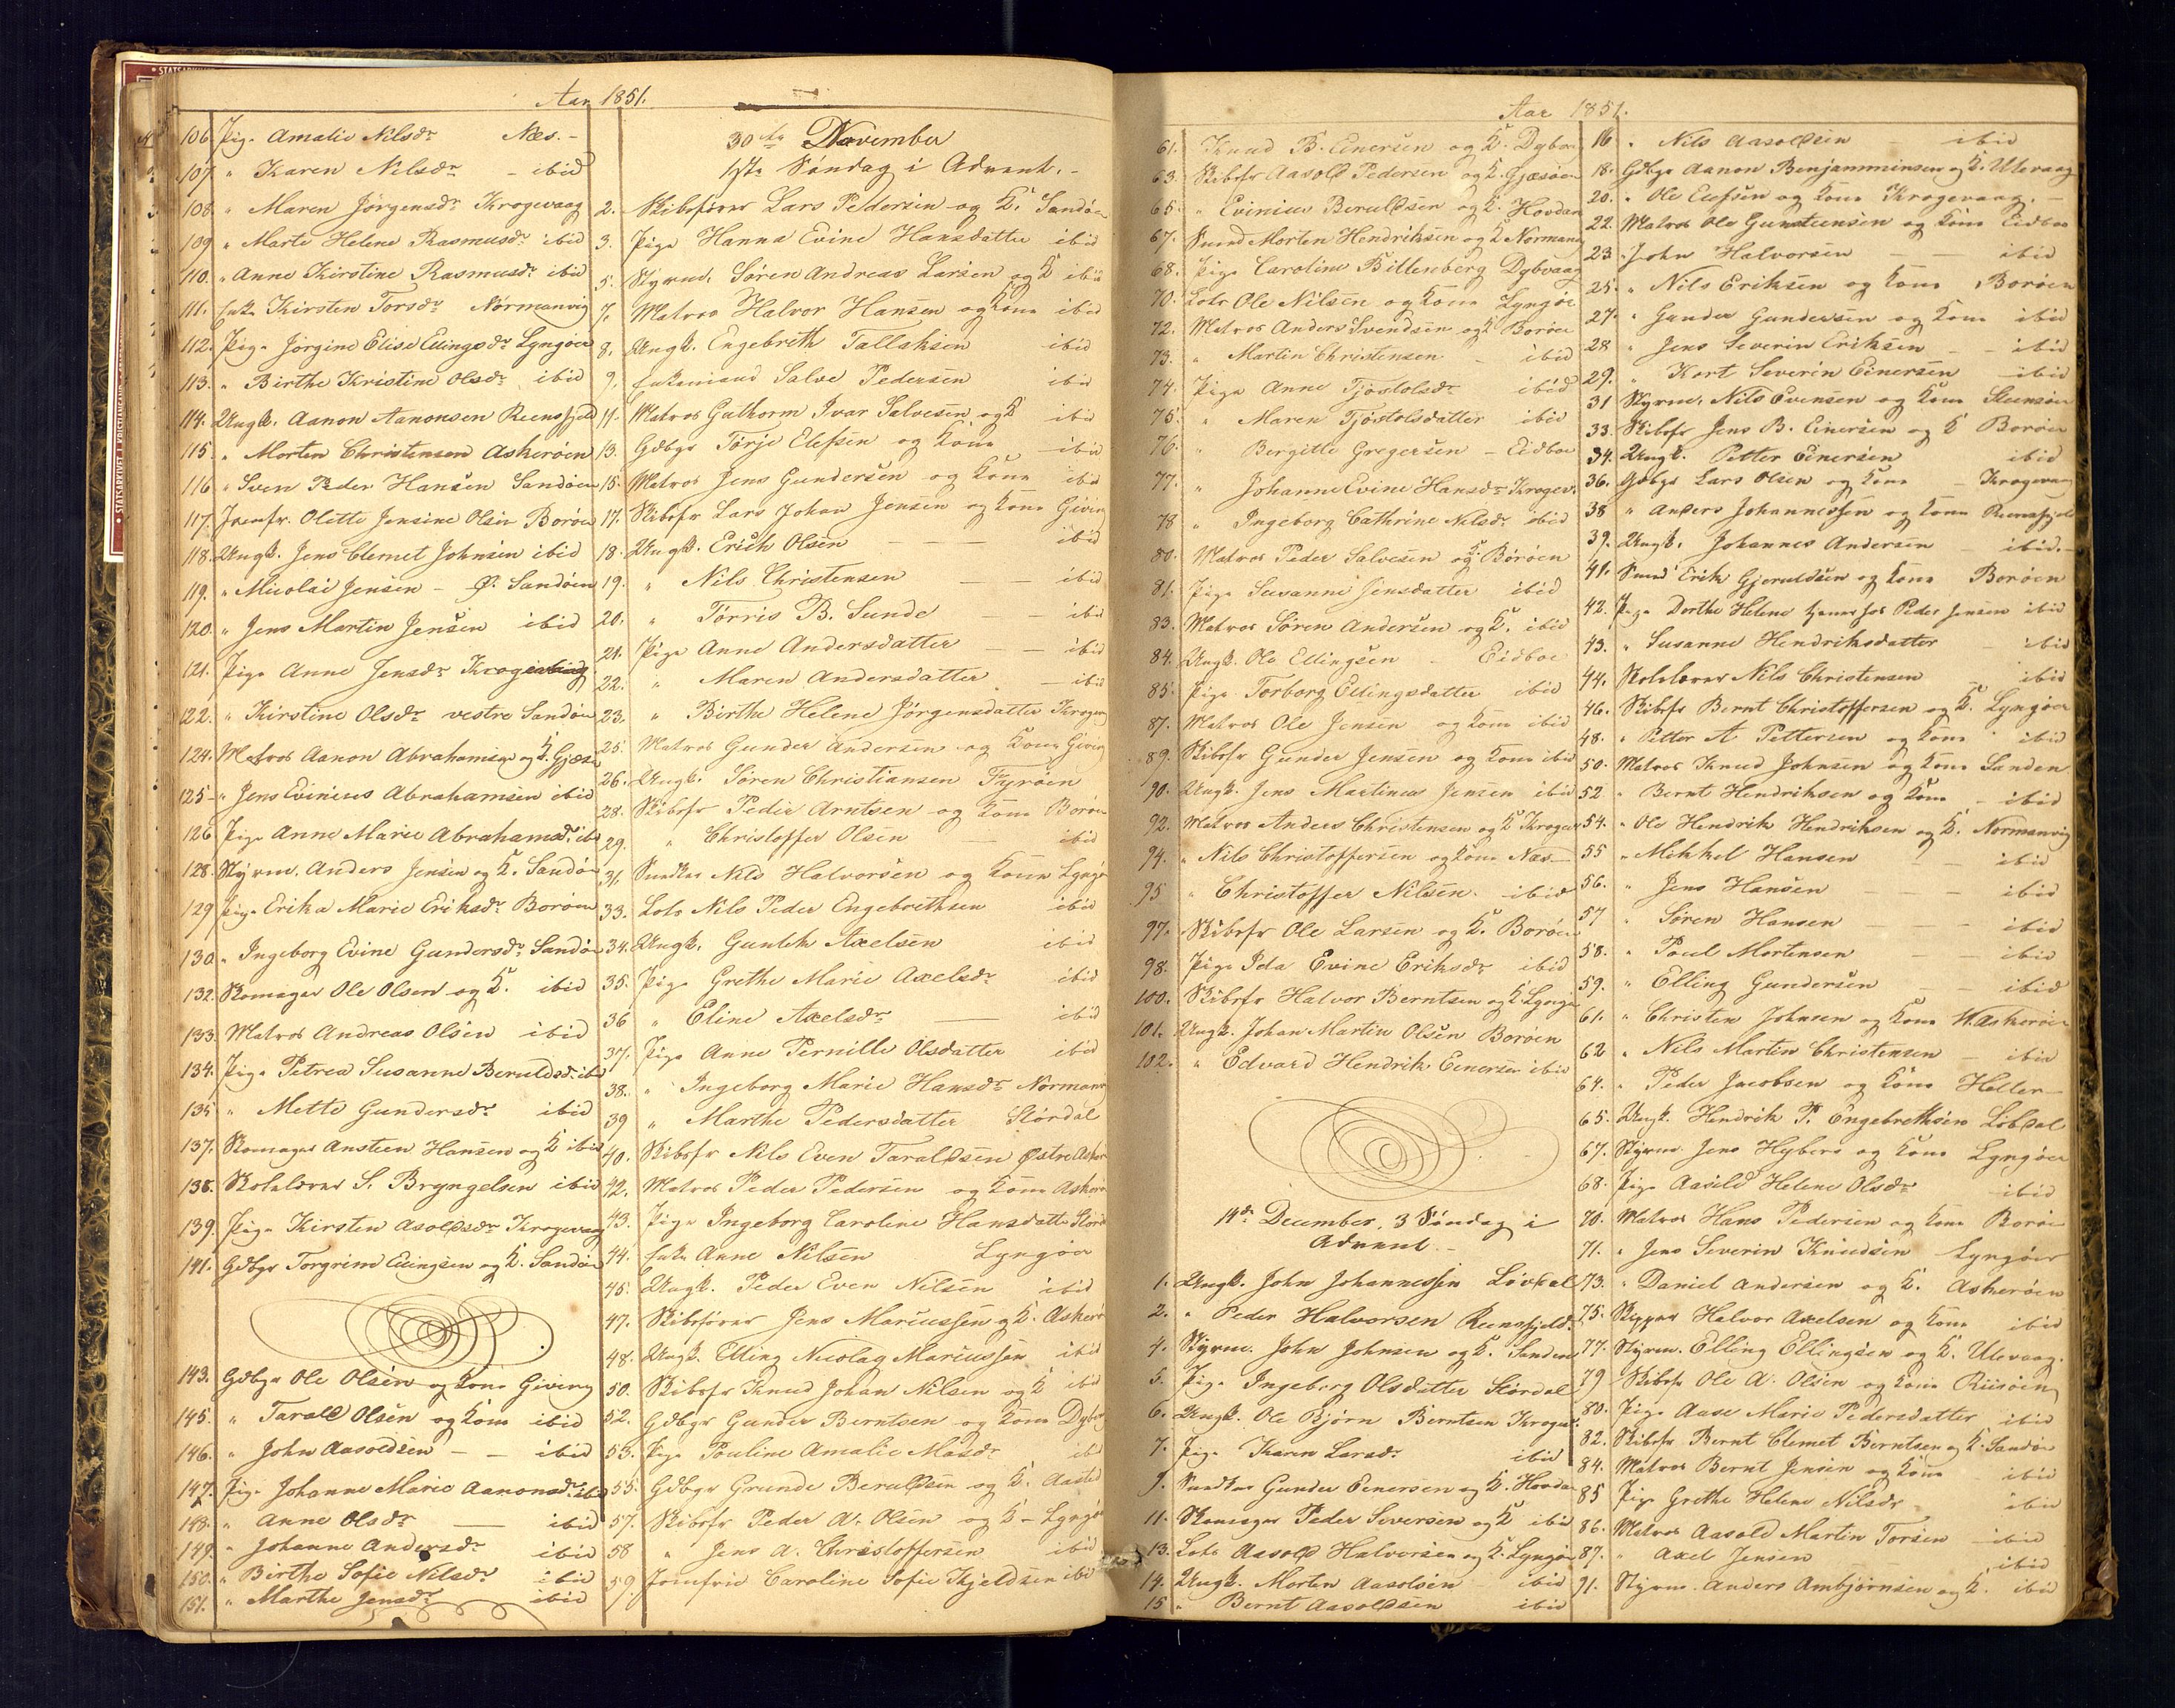 Aar 1851.
106 Pige Amalie Nilsdr Næs.
107 " Karen Nilsdr - ibid
108. " Maren Jörgensdr Krogevaag
109 " Marte Helene Rasmusdr ibid
110. " Anne Kirstine Rasmusdr ibid
111. Enke Kirsten Torsdr Normanvig
112. Pige Jörgine Elise Ellingsdr Lyngöer
113. " Birthe Kristine Olsdr ibid
114. Ungk. Aanon Aanonsen Reensfjeld
115. " Morten Christensen Askeröen
116 " Sven Peder Hansen Sandöen
117. Jomfr. Olette Jensine Olsen Boröen
118. Ungk. Jens Clemet Johnsen ibid
119. " Nicolai Jensen - Ø. Sandöen
120. " Jens Martin Jensen ibid
121. Pige Anne Jensdr
122. " Kirstine Olsdr vestre Sandöen
124. Matros Aanon Abrahamsen og K. Gjæsö
125 - " Jens Evinius Abrahamsen ibid
126 Pige Anne Marie Abrahamsdr. ibid
128. Styrm. Anders Jensen og K. Sandö
129 Pige Erika Marie Eriksdr Boröen
130. " Ingeborg Evine Gundersdr Sandö
132. Skomager Ole Olsen og K. ibid
133. Matros Andreas Olsen ibid
134. Pige Petrea Susanne Beruldsdr. ibid
135 " Mette Gundersdr ibid
137. Skomager Ansteen Hansen og K ibid
138. Skolelærer S. Bryngelsen ibid
139. Pige Kirsten Asoldsdr Krogevaag
141. Gdbgr Torgrim Ellingsen og K. Sandöen
143. Gdbgr Ole Olsen og Kone Giving
145. " Tarald Olsen og Kone ibid
146. " John Aasoldsen - - ibid
147. Pige Johanne Marie Aanonsdr. ibid
148. " Anne Olsdr ibid
149. " Johanne Andersdr ibid
150. " Birthe Sofie Nilsdr ibid
151. " Marthe Jensdr ibid
30te November
1ste Söndag i Advent. -
2. Skibsförer Lars Pedersen og K. Sandöen
3. Pige Hanna Evine Hansdatter ibid
5. Styrm. Sören Andreas Larsen og K ibid
7. Matros Halvor Hansen og Kone ibid
8. Ungk. Engebreth Tallaksen ibid
9. Enkemand Salve Pedersen ibid
11. Matros Guthorm Ivar Salvesen og K ibid
13. Gdbgr Törje Elefsen og Kone ibid
15. Matros Jens Gundersen og Kone ibid
17. Skibsfr Lars Johan Jensen og Kone Givin
18. Ungk. Erich Olsen - - - ibid
19. " Nils Christensen - - ibid
20. " Törris B. Sunde - - ibid
21. Pige Anne Andersdatter - - ibid
22. " Maren Andersdatter - ibid
23. " Birthe Helene Jörgensdatter Kroge
25. Matros Gunder Andersen og Kone Givin
26. Ungk. Sören Christiansen Fyröen
28. Skibsfr Peder Arntsen og Kone Boröe
29. " Christoffer Olsen ibid
31. Nils Halvorsen og Kone Lyngö
33. Lots Nils Peder Engebrethsen ibid
34. Ungk. Gunlek Axelsen ibid
35. Pige Grethe Marie Axelsdr ibid
36 " Eline Axelsdr ibid
37. Pige Anne Pernille Olsdatter ibid
38. " Ingeborg Marie Hansdr Normanv
39 " Marthe Pedersdatter Stördal
40. Skibsfr Nils Even Taraldsen Östre Asker
42. Matros Peder Pedersen og Kone Askerö
43. Pige Ingeborg Caroline Hansdatter Störd
44. Enke Anne Nilsen Lyngöer
45. Ungk. Peder Even Nilsen ibid
47. Skibsförer Jens Mariussen og K. Askerö
48. Ungk. Elling Nicolay Mariussen ibid
50. Skibsfr Knud Johan Nilsen og K ibid
52. Gdbgr Gunder Berntsen og Kone Dybv
53. Pige Pouline Amalie ibid
55. Gdbgr Grunde Beruldsen og K. Aasted
57. Skibsfr Peder A. Olsen og K - Lyngö
58 " Jens A. Christoffersen ibid
59. Jomfrue Caroline Sofie Kjeldsen ibid
Aar 1851.
61. Knud B. Einersen og K. Dybva
63. Skibsfr Aasold Pedersen og K. Gjæsöen
65. " Evinius Beruldsen og K. Hovdan
67. Morten Hendriksen og K Normanv
68. Pige Caroline Bittenberg Dybvaag
70. Lots Ole Nilsen og Kone Lyngör
72. Matros Anders Svendsen og K Boröen
73. " Martin Christensen - ibid
74. Pige Anne Tjöstolsdr ibid
75. " Maren Tjöstolsdatter ibid
76. " Bergitte Gregersen - Eidboe
77. " Johanne Evine Hansdr Krogev.
78 " Ingeborg Cathrine Nilsdr ibid
80. Matros Peder Salvesen og K. Boröen
81. Pige Susanne Jensdatter ibid
83. Matros Sören Andersen og K. ibid
84. Ungk. Ole Ellingsen - Eidboe
85. Pige Torborg Ellingsdatter ibid
87. Matros Ole Jensen og Kone ibid
89. Skibsfr Gunder Jensen og Kone ibid
90. Ungk. Jens Martinus Jensen ibid
92. Matros Anders Christensen og K Krogev
94. " Nils Christoffersen og Kone Næs
95 " Christoffer Nilsen ibid
97. Skibsfr Ole Larsen og K. Boröen
98. Pige Ida Evine Eriksdr ibid
100. Skibsfr Halvor Berntsen og K Lyngö
101. Ungk. Johan Martin Olsen Boröen
102. " Edvard Hendrik Einersen ibid
14de December, 3 Söndag i
Advent. -
1. Ungk. John Johannessen Lövdal
2. " Peder Halvorsen Reensfjeld.
4. Styrm. John Johnsen og K. Sanden
5. Pige Ingeborg Olsdatter Stördal
6. Ungk. Ole Björn Berntsen Krogev.
7. Pige Karen Larsdr ibid
9. Gunder Einersen og K. Hovdan
11. Skomager Peder Seversen og K ibid
13. Lots Aasold Halvorsen og K. Lyngöer
14. Ungk. Morten Aasolsen ibid
15 " Bernt Aasoldsen ibid
16 " Nils Aasoldsen - ibid
18. Gdbgr Aanon Benjaminsen og K. Ulevaag
20. " Ole Elefsen og Kone Krogevaag. -
22. Matros Ole Gunsteensen og Kone Eidboe
23 " John Halvorsen - - ibid
25. " Nils Eriksen og Kone Boröen
27. " Gunder Gundersen og Kone ibid
28 " Jens Severin Eriksen - - ibid
29. " Kort Severin Einersen ibid
31 Styrm. Nils Evensen og Kone Steensöen
33. Skibsfr Jens B. Einersen og K Boröen
34. Ungk. Petter Einersen ibid
36. Gdbgr Lars Olsen og Kone - Krogevaag
38 " Anders Johannessen og Kone Reensfjeld
39. Ungk. Johannes Andersen ibid. -
41. Erik Gjeruldsen og Kone Boröen
42. Pige Dorthe Helene tjener hos Peder Jensen ibid
43. " Susanne Hendriksdatter - ibid
44. Skolelærer Nils Christensen - ibid
46. Skibsfr Bernt Christoffersen og K. Lyngöer
48. " Petter A Pettersen og Kone ibid
50. Matros Knud Johnsen og Kone Sanden
52 " Bernt Hendriksen og Kone - ibid
54. " Ole Hendrik Hendriksen og K. Normanvig
55 " Mikkel Hansen - - ibid
56. " Jens Hansen - - - ibid
57 " Sören Hansen - - - ibid
58. " Poul Mortensen - - ibid
59. " Elling Gundersen - - ibid
61. " Christen Johnsen og Kone W. Askeröen
62 " Nils Martin Christensen - ibid
64. " Peder Jacobsen og Kone Heller
65. Ungk. Hendrik P. Engebrethsen Löbdal
67. Styrm. Jens Hybers og Kone Lyngöer
68. Pige Aasild Helene Olsdr ibid
70. Matros Hans Pedersen og Kone Boröe
71. " Jens Severin Knudsen Lyngöer
73. " Daniel Andersen og K. Askeröen
75. Skipper Halvor Axelsen og Kone ibid
77. Styrm. Elling Ellingsen og K. Ulevaag.
79 Skibsfr Ole A. Olsen og Kone Riisöen
80. Pige Aase Marie Pedersdatter ibid
82. Skibsfr Bernt Clemet Berntsen og K. Sandöe
84. Matros Bernt Jensen og Kone ibid
85 Pige Grethe Helene Nilsdr ibid
86. Matros Aasold Martin Torsen ibid
87. " Axel Jensen ibid
91. Styrm. Anders Ambjörnsen og K. ibid